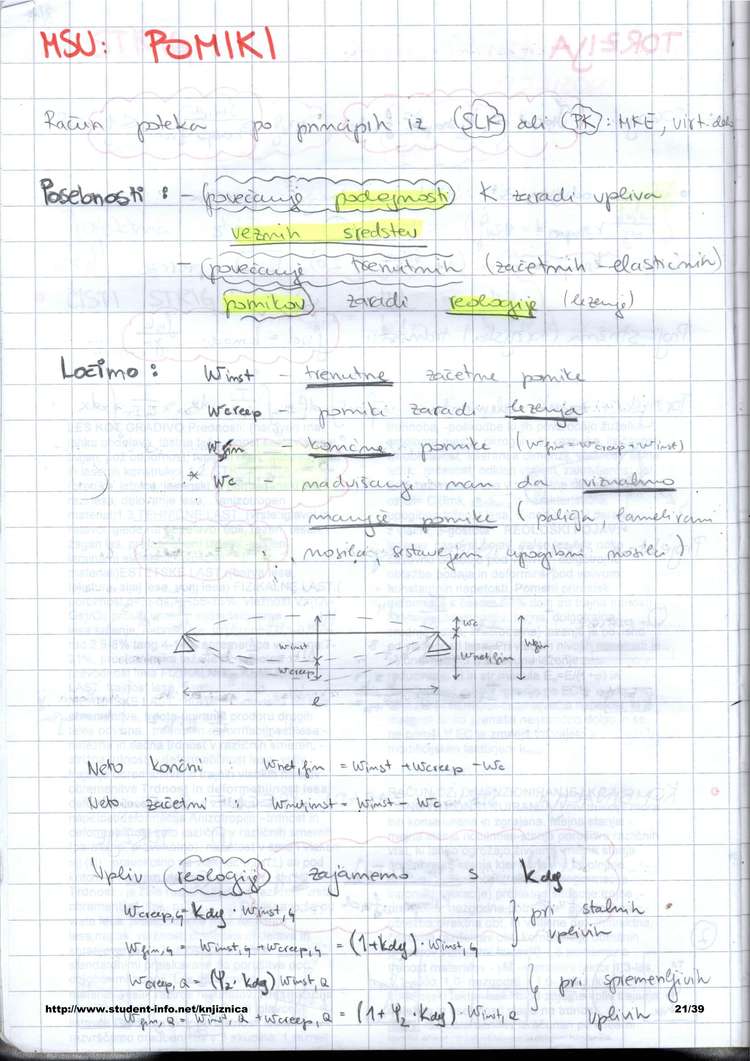 MSU: POMIKI
Račun poteka po principih iz (SLK) ali (PK): MKE, virt. delo
Posebnosti: - povečanje podajnosti K zaradi vpliva
veznih sredstev
- povečanje trenutnih (začetnih - elastičnih)
pomikov zaradi reologije (lezenje)
Ločimo: Winst - trenutne začetne pomike
Wcreep - pomiki zaradi lezenja
Wfin - končne pomike (Wfin = Wcreep + Winst)
* Wc - nadvišanje nam da vizualno
manjše pomike (paličja, lamelirani
nosilci, sestavljeni upogibni nosilci)
Winst
Wcreep
l
Wc
Wnet,fin
Wfin
Neto končni: Wnet,fin = Winst + Wcreep - Wc
Neto začetni: Wnet,inst = Winst - Wc
Vpliv reologije zajamemo s kdef
Wcreep,G = kdef · Winst,G
Wfin,G = Winst,G + Wcreep,G = (1+kdef) · Winst,G
} pri stalnih vplivih
Wcreep,Q = (Ψ2 · kdef) Winst,Q
Wfin,Q = Winst,Q + Wcreep,Q = (1 + Ψ2 · kdef) · Winst,Q
} pri spremenljivih vplivih
http://www.student-info.net/knjiznica
21/39